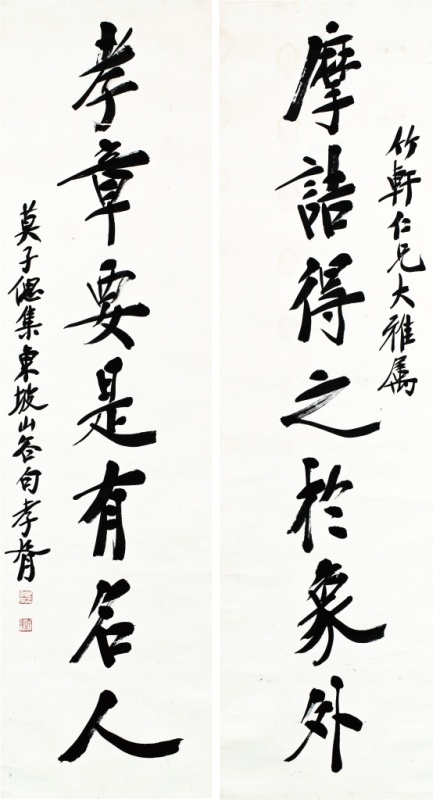 竹軒仁兄大雅属
摩詰得之於象外
孝章要是有名人
莫子偲集東坡山谷句孝胥